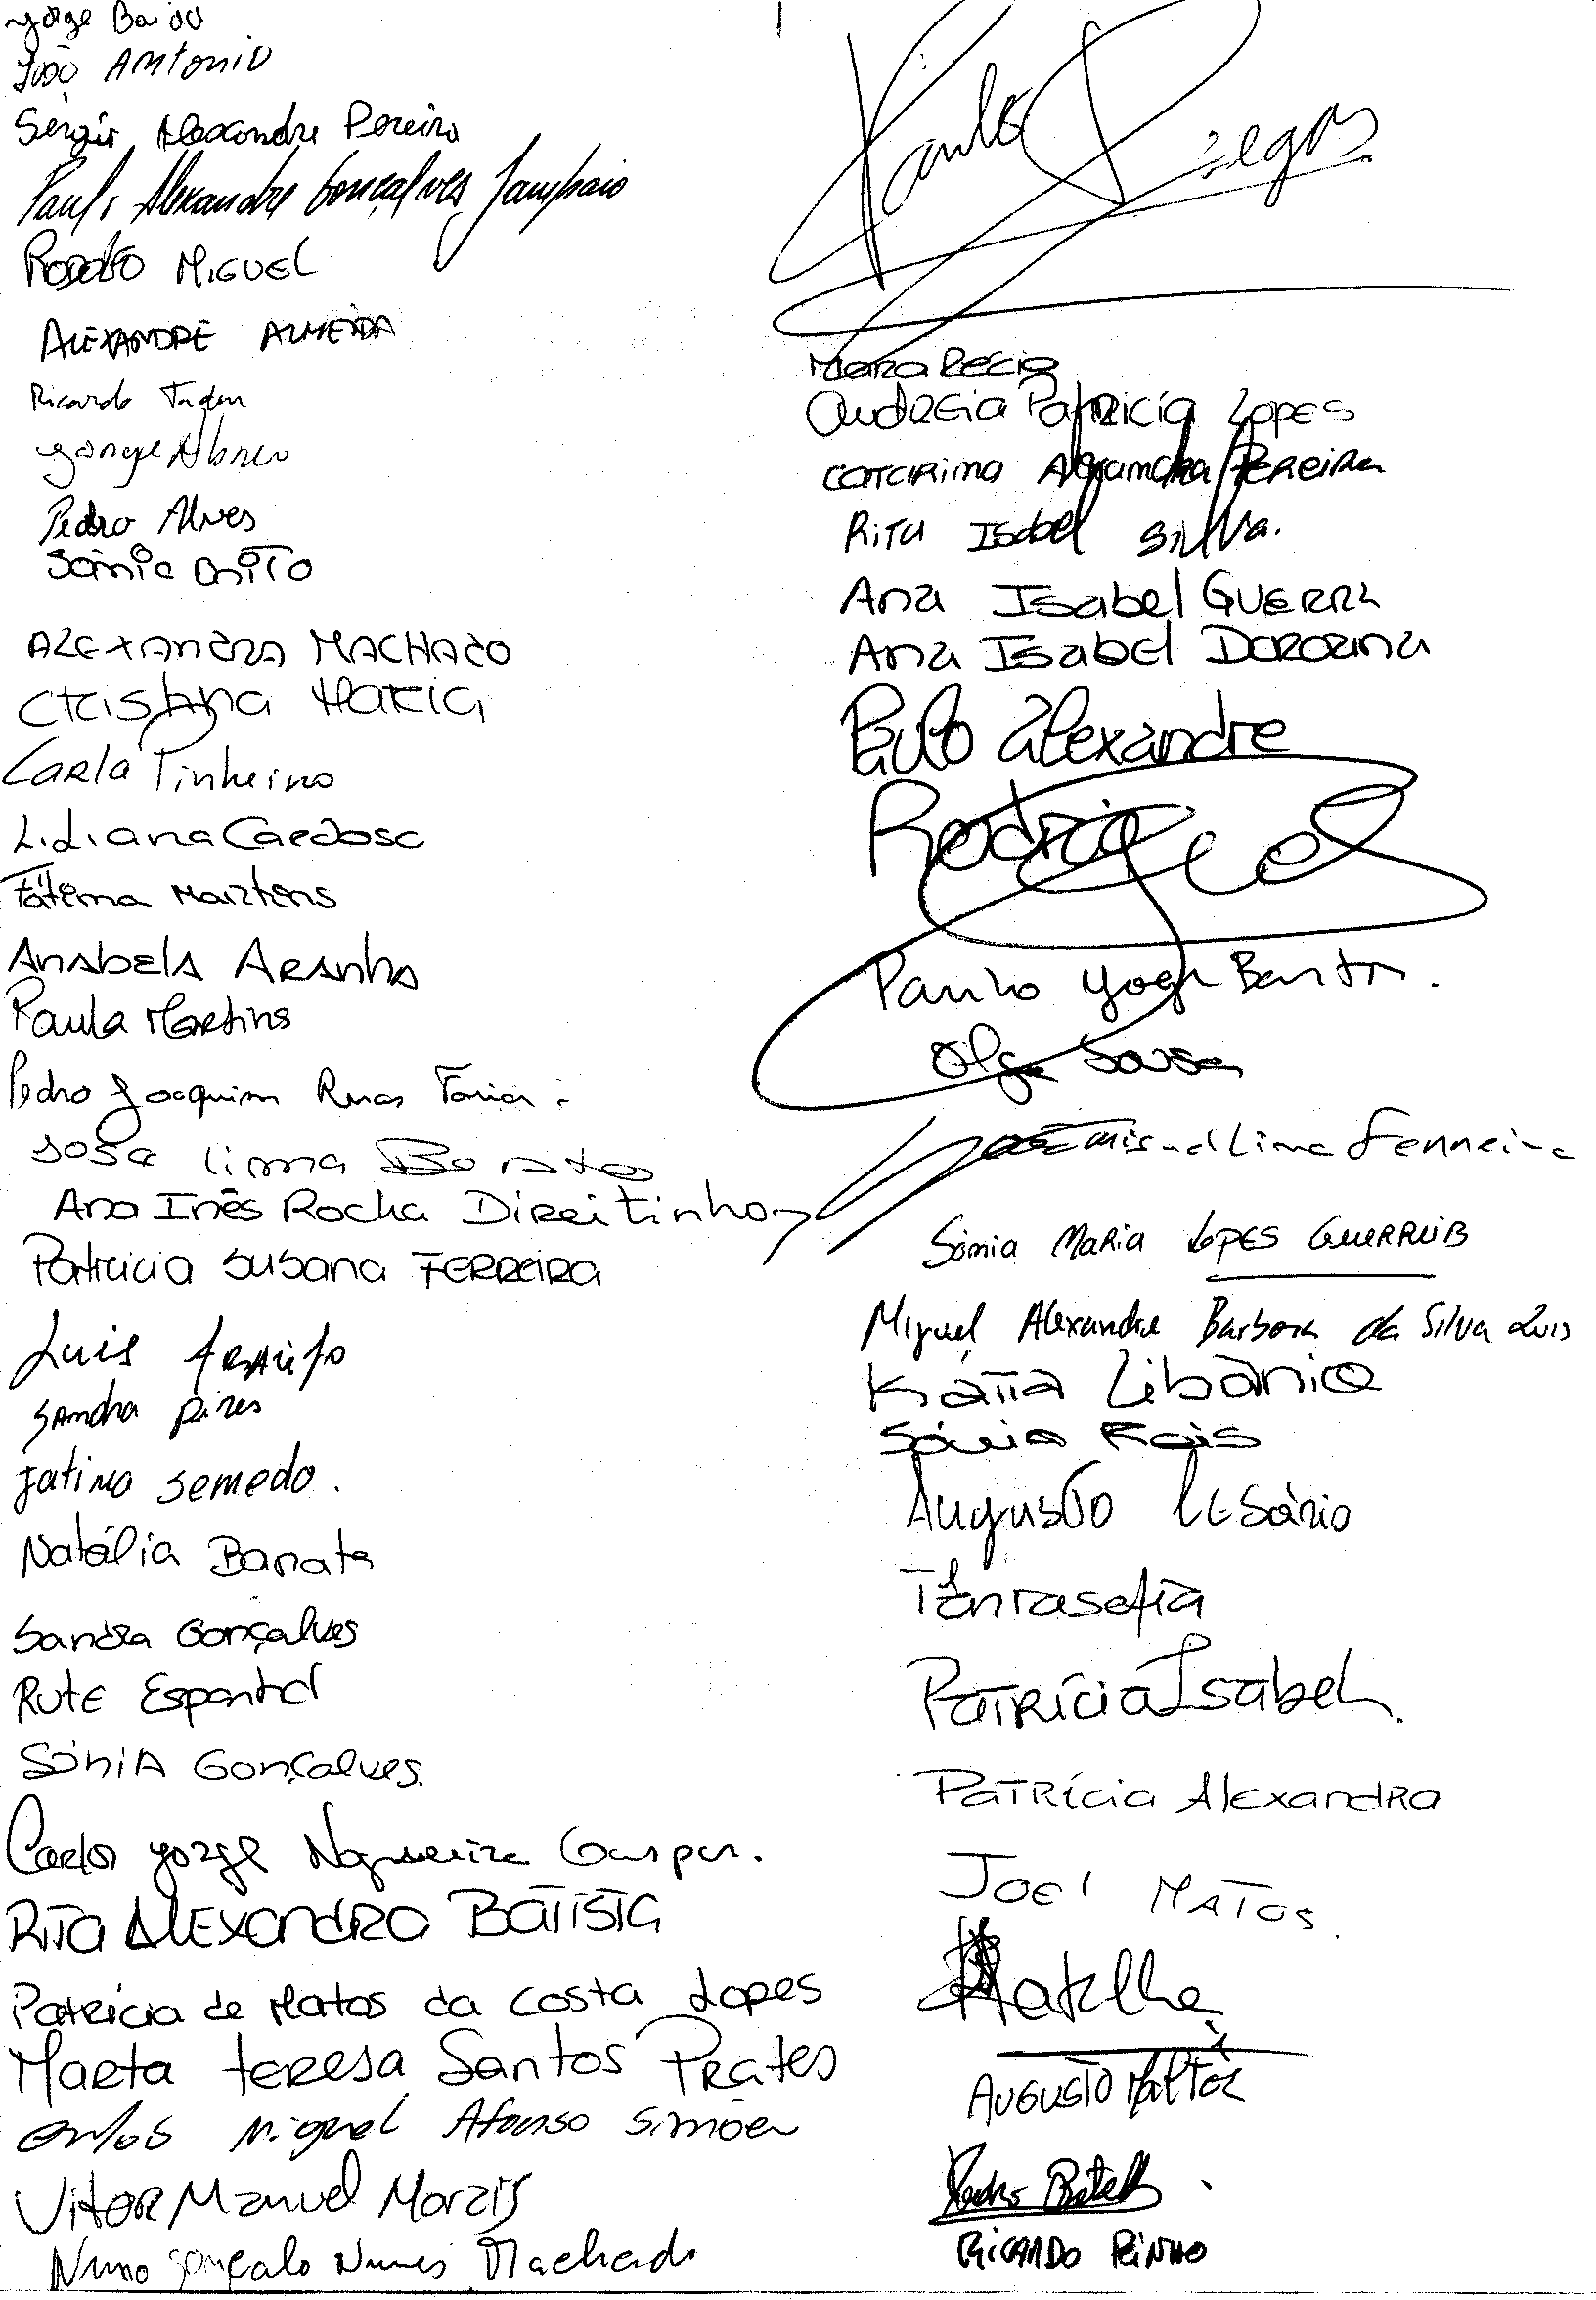 Jorge
João Antonio
Sérgio Alexandre Pereira
Paulo Alexandre Gonçalves Sampaio
Rodolfo MIGUEL
ALEXANDRE ALMEIDA
Ricardo
Jorge Abreu
Pedro Alves
Sónia Brito
ALEXANDRA MACHADO
Cristina Maria
Carla Pinheiro
Lidiana Cardoso
Fátima Martins
Anabela Aranha
Paula Martins
Pedro Joaquim Ruas Faria
José Lima
Ana Inês Rocha Direitinho
Patricia Susana FERREIRA
Luis Araújo
Sandra Pires
Fatima Semedo.
Natália Barata
Sandra Gonçalves
RUTE Espanhol
SÓNIA Gonçalves.
Carlos Jorge Nogueira Gaspar.
Rita ALEXANDRA BATISTA
Patrícia de Matos da Costa Lopes
Marta teresa Santos Prates
Carlos Miguel Afonso Simões
VITOR Manuel Morais
Nuno Gonçalo Nunes Machado
Paulo
Mara Recio
Andreia Patricia Lopes
Catarina Alexandra Pereira
Rita Isabel Silva.
Ana Isabel GUERRA
Ana Isabel
Paulo Alexandre
Rodrigues
Paulo Jorge
Olga Sousa
José Miguel Lima Ferreira
Sónia Maria LOPES GUERREIRO
Miguel Alexandre Barbosa da Silva Luis
Kátia Libânio
Sónia Reis
Augusto Cesário
Tânia Sofia
Patrícia Isabel
Patrícia Alexandra
JOEL MATOS.
AUGUSTO
Pedro
RICARDO PINHO